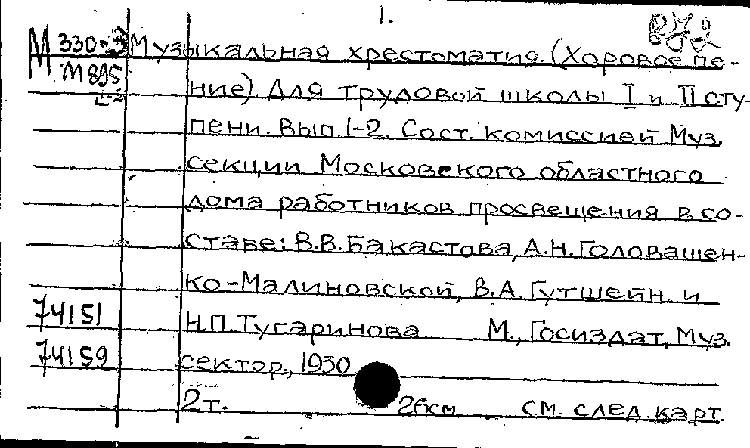 1.
М 330-3 Музыкальная хрестоматия. (Хоровое пе-
М895
ние) Для трудовой школы I и II сту-
пени. Вып. 1-2. Сост. комиссией Муз.
секции Московского областного
дома работников просвещения в со-
ставе: В.В. Бакастова, А.Н. Головашен-
ко-Малиновской, В.А. Гутшейн. и
74151
Н.П. Тугаринова М., Госиздат, Муз.
74159
сектор, 1930
2т. 26см см. след. карт.